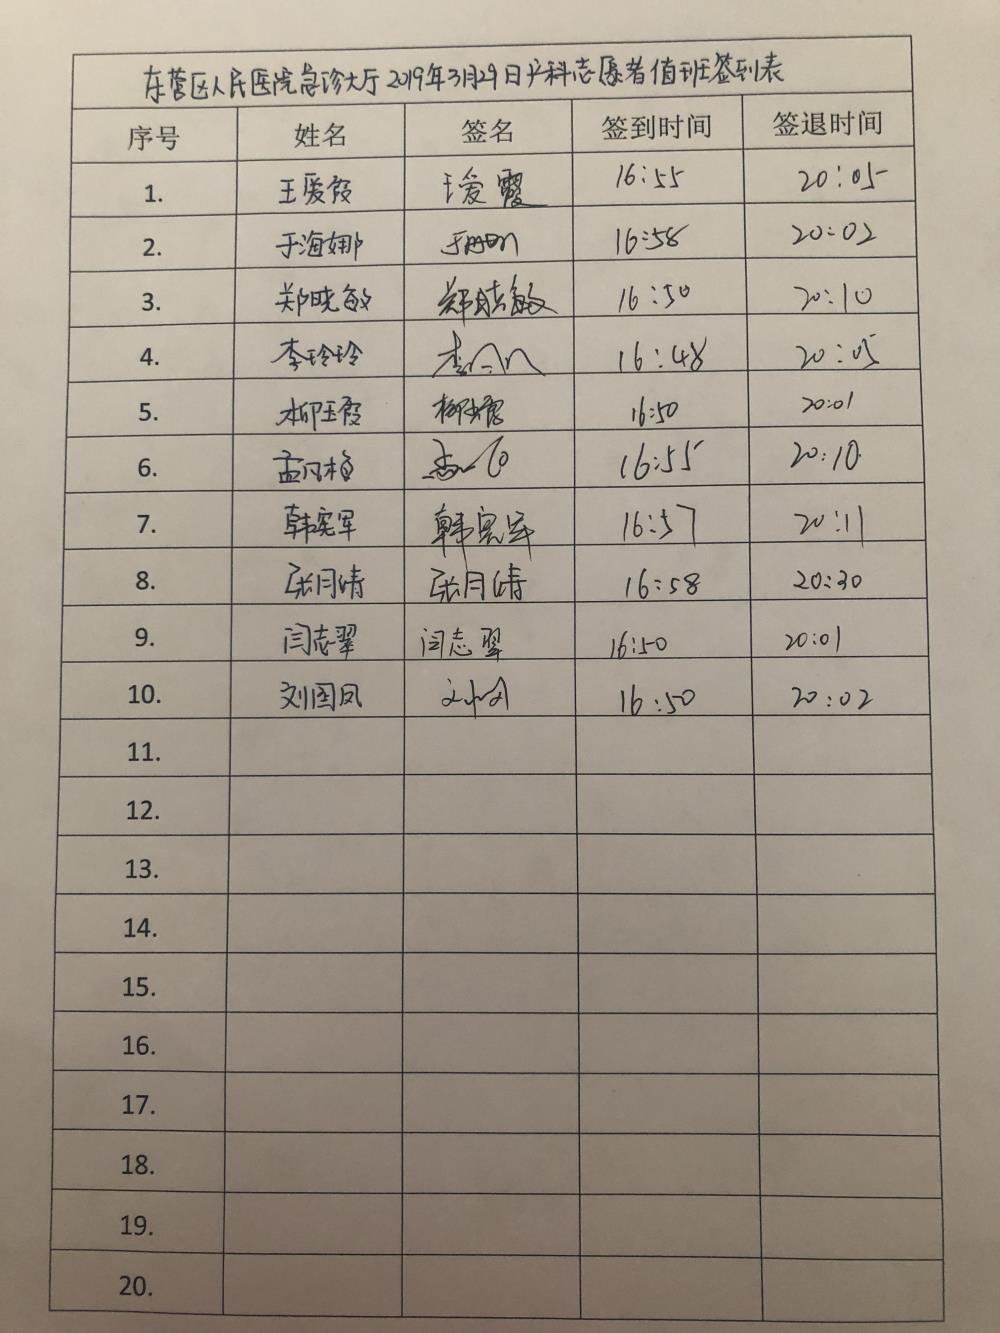 东营区人民医院急诊大厅2019年3月29日产科志愿者值班签到表
序号 姓名 签名 签到时间 签退时间
1. 王爱霞 王爱霞 16:55 20:05
2. 于海娜 16:58 20:02
3. 郑晓敏 郑晓敏 16:50 20:10
4. 李玲玲 李 16:48 20:05
5. 柳玉霞 柳玉霞 16:50 20:01
6. 孟凡梅 16:55 20:10
7. 韩宪军 韩宪军 16:57 20:11
8. 张月清 张月清 16:58 20:30
9. 闫志翠 闫志翠 16:50 20:01
10. 刘国凤 16:50 20:02
11.
12.
13.
14.
15.
16.
17.
18.
19.
20.